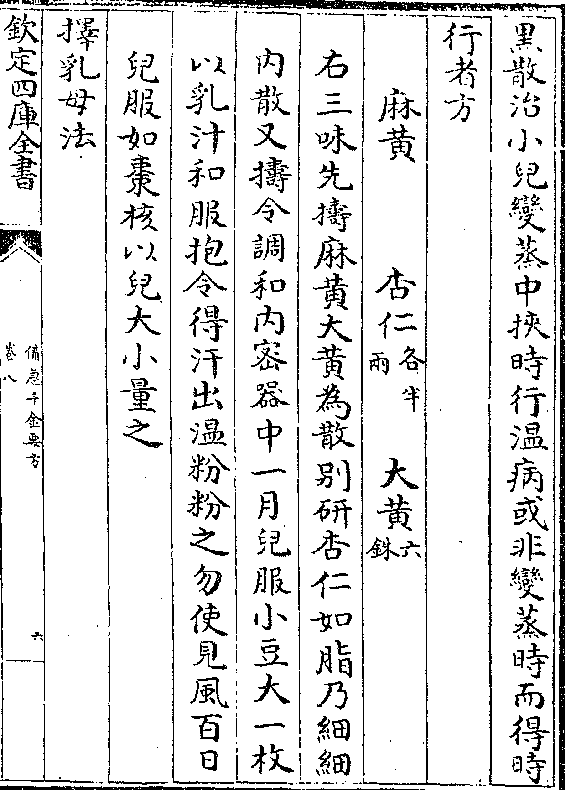 黒散治小兒變蒸中挾時行温病或非變蒸時而得時
行者方
麻黄 杏仁各半兩 大黄六銖
右三味先擣麻黄大黄為散别研杏仁如脂乃細細
内散又擣令調和内密器中一月兒服小豆大一枚
以乳汁和服抱令得汗出温粉粉之勿使見風百日
兒服如棗核以兒大小量之
擇乳母法
欽定四庫全書
備急千金要方
卷八
六